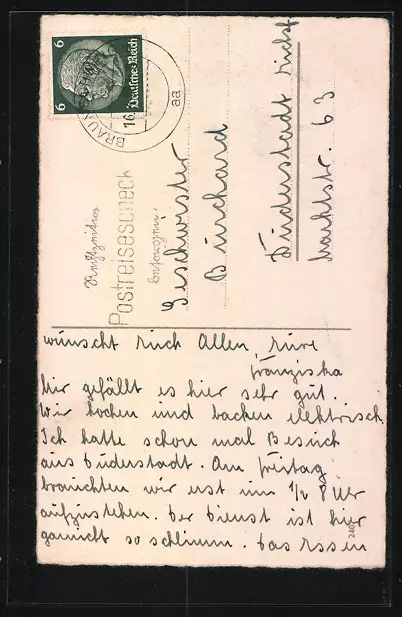 6 6
Deutsches Reich
BRAU
16.
aa
Rechtzeitig
Postreisescheck
besorgen!
Geschwister
Burchard
Duderstadt
Marktstr. 63
wünscht Euch Allen, Eure
Franziska
Mir gefällt es hier sehr gut.
Wir kochen und backen elektrisch
Ich hatte schon mal Besuch
aus Duderstadt. Am Freitag
brauchten wir erst um 1/2 8 Uhr
aufzustehen. Der Dienst ist hier
garnicht so schlimm. Das Essen